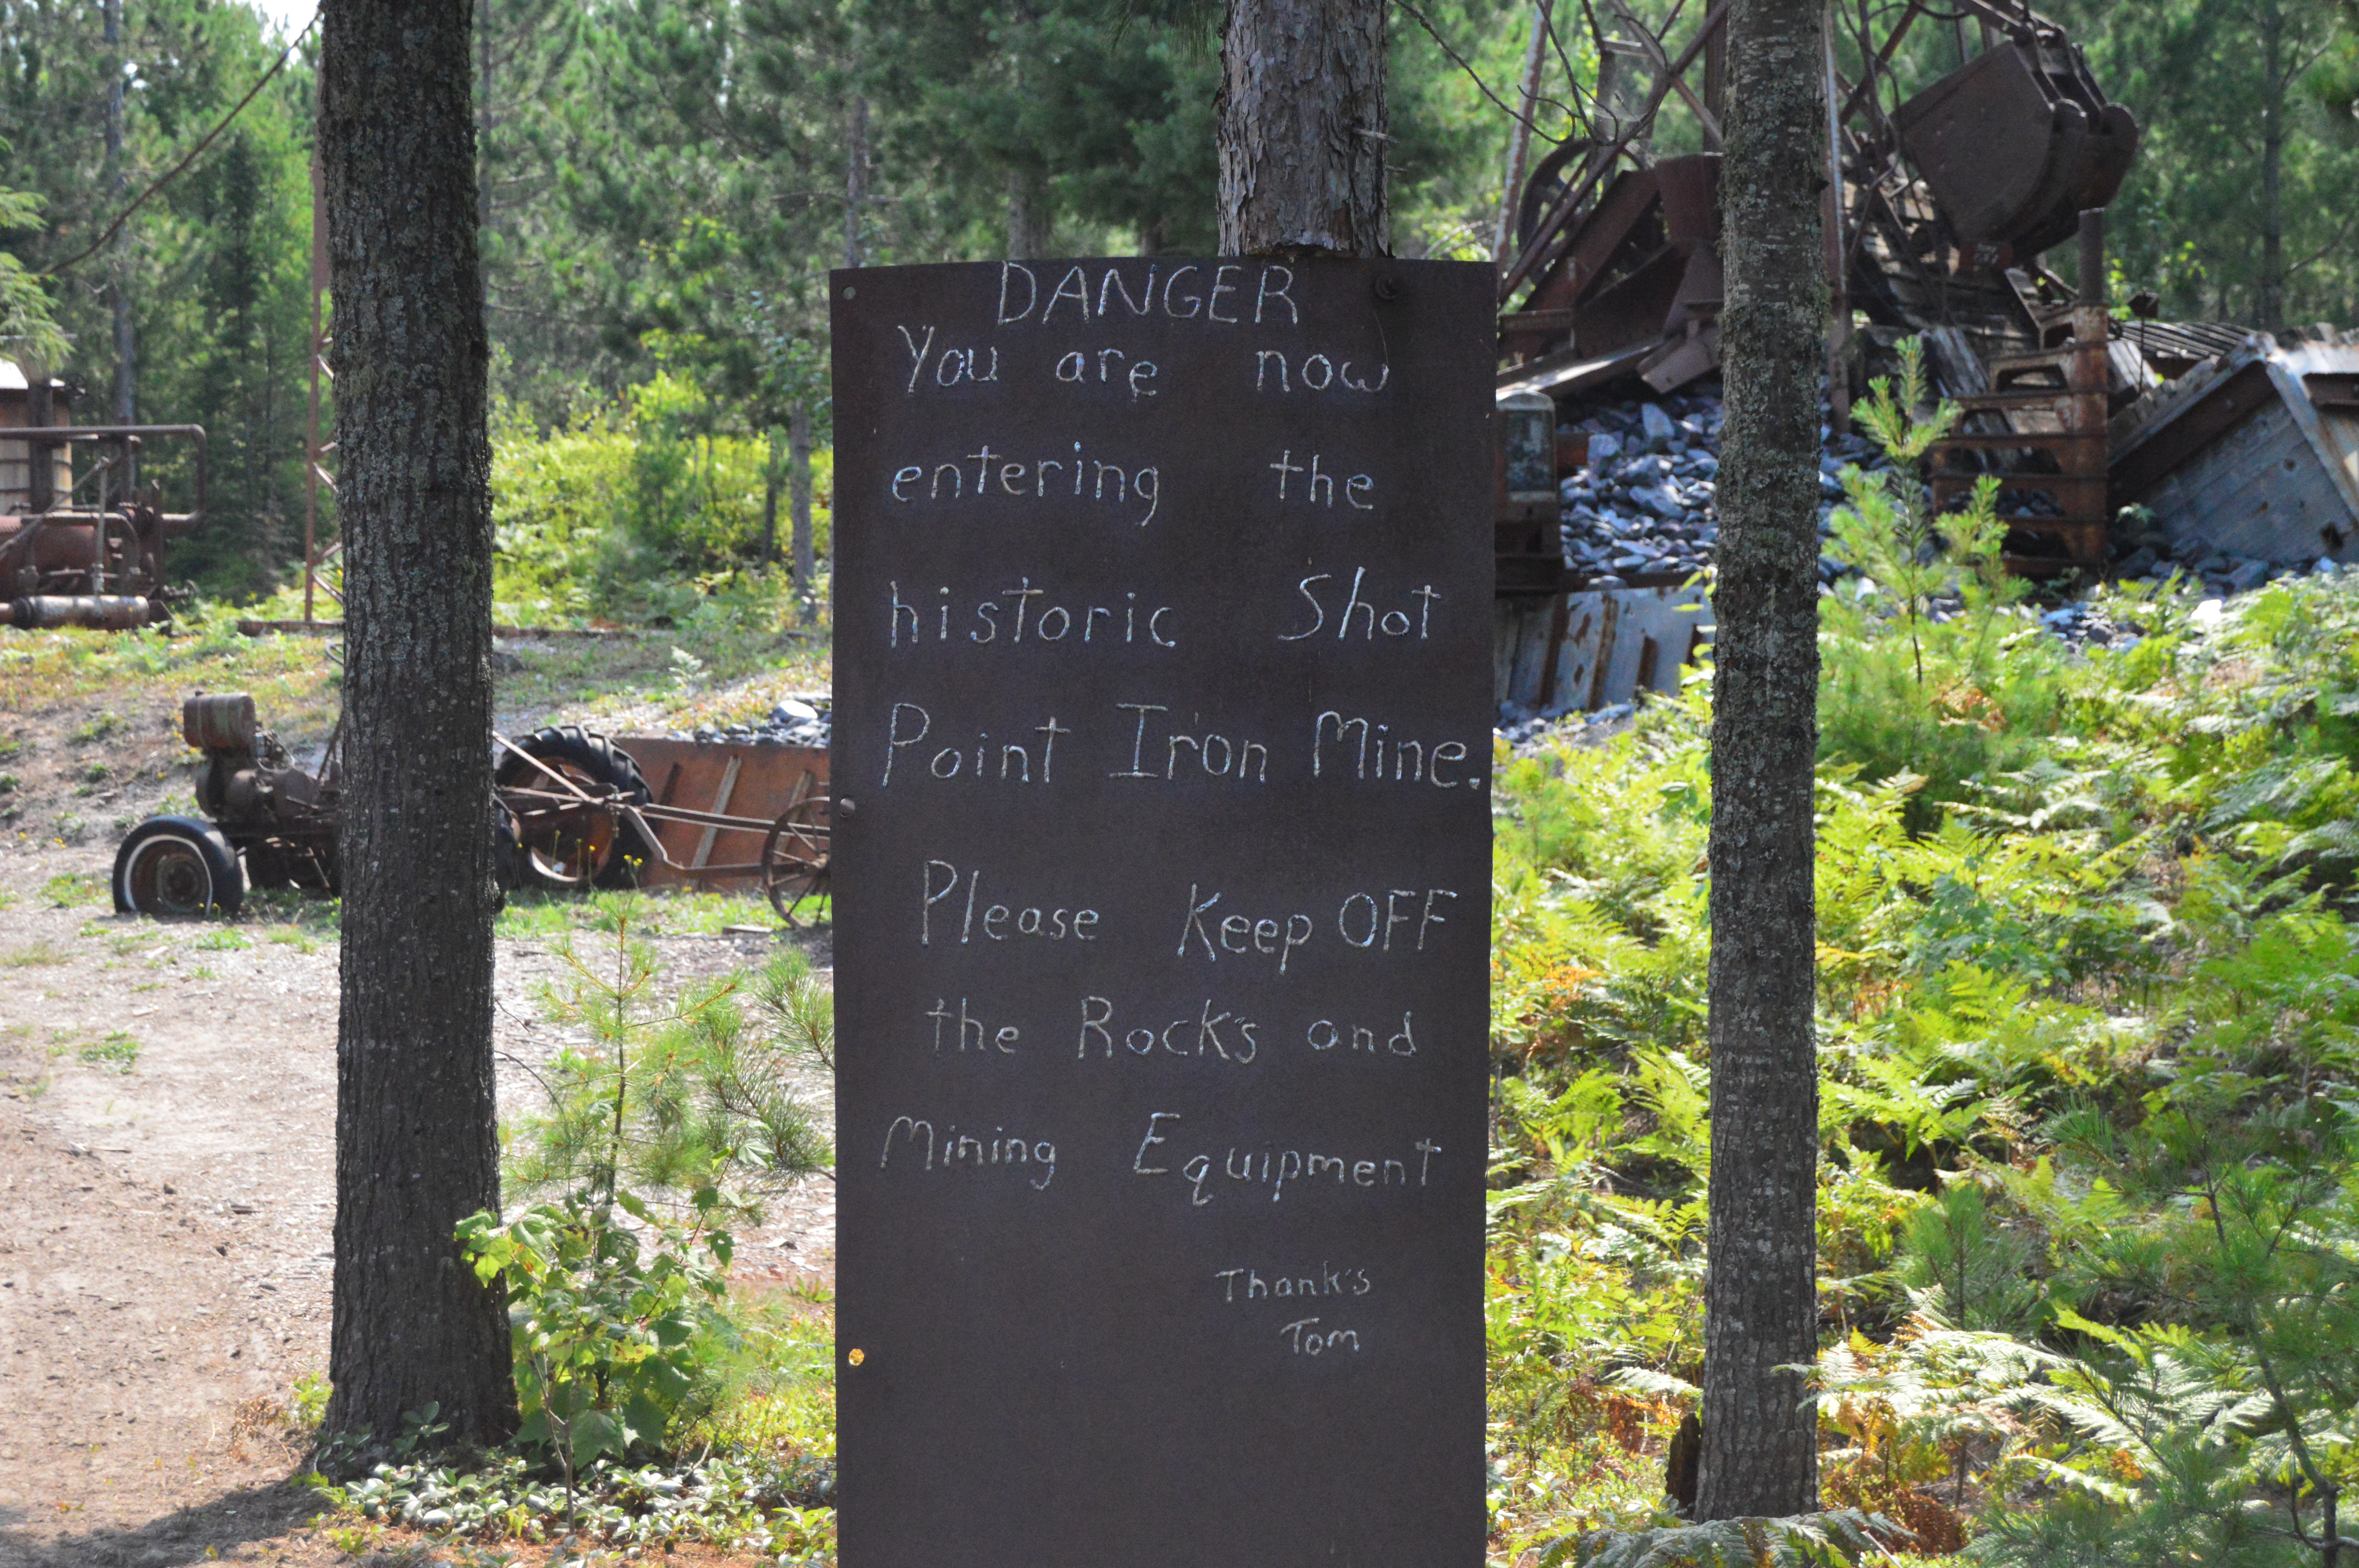 DANGER
You are now
entering the
historic Shot
Point Iron Mine.
Please Keep OFF
the Rock's and
Mining Equipment
Thank's
Tom